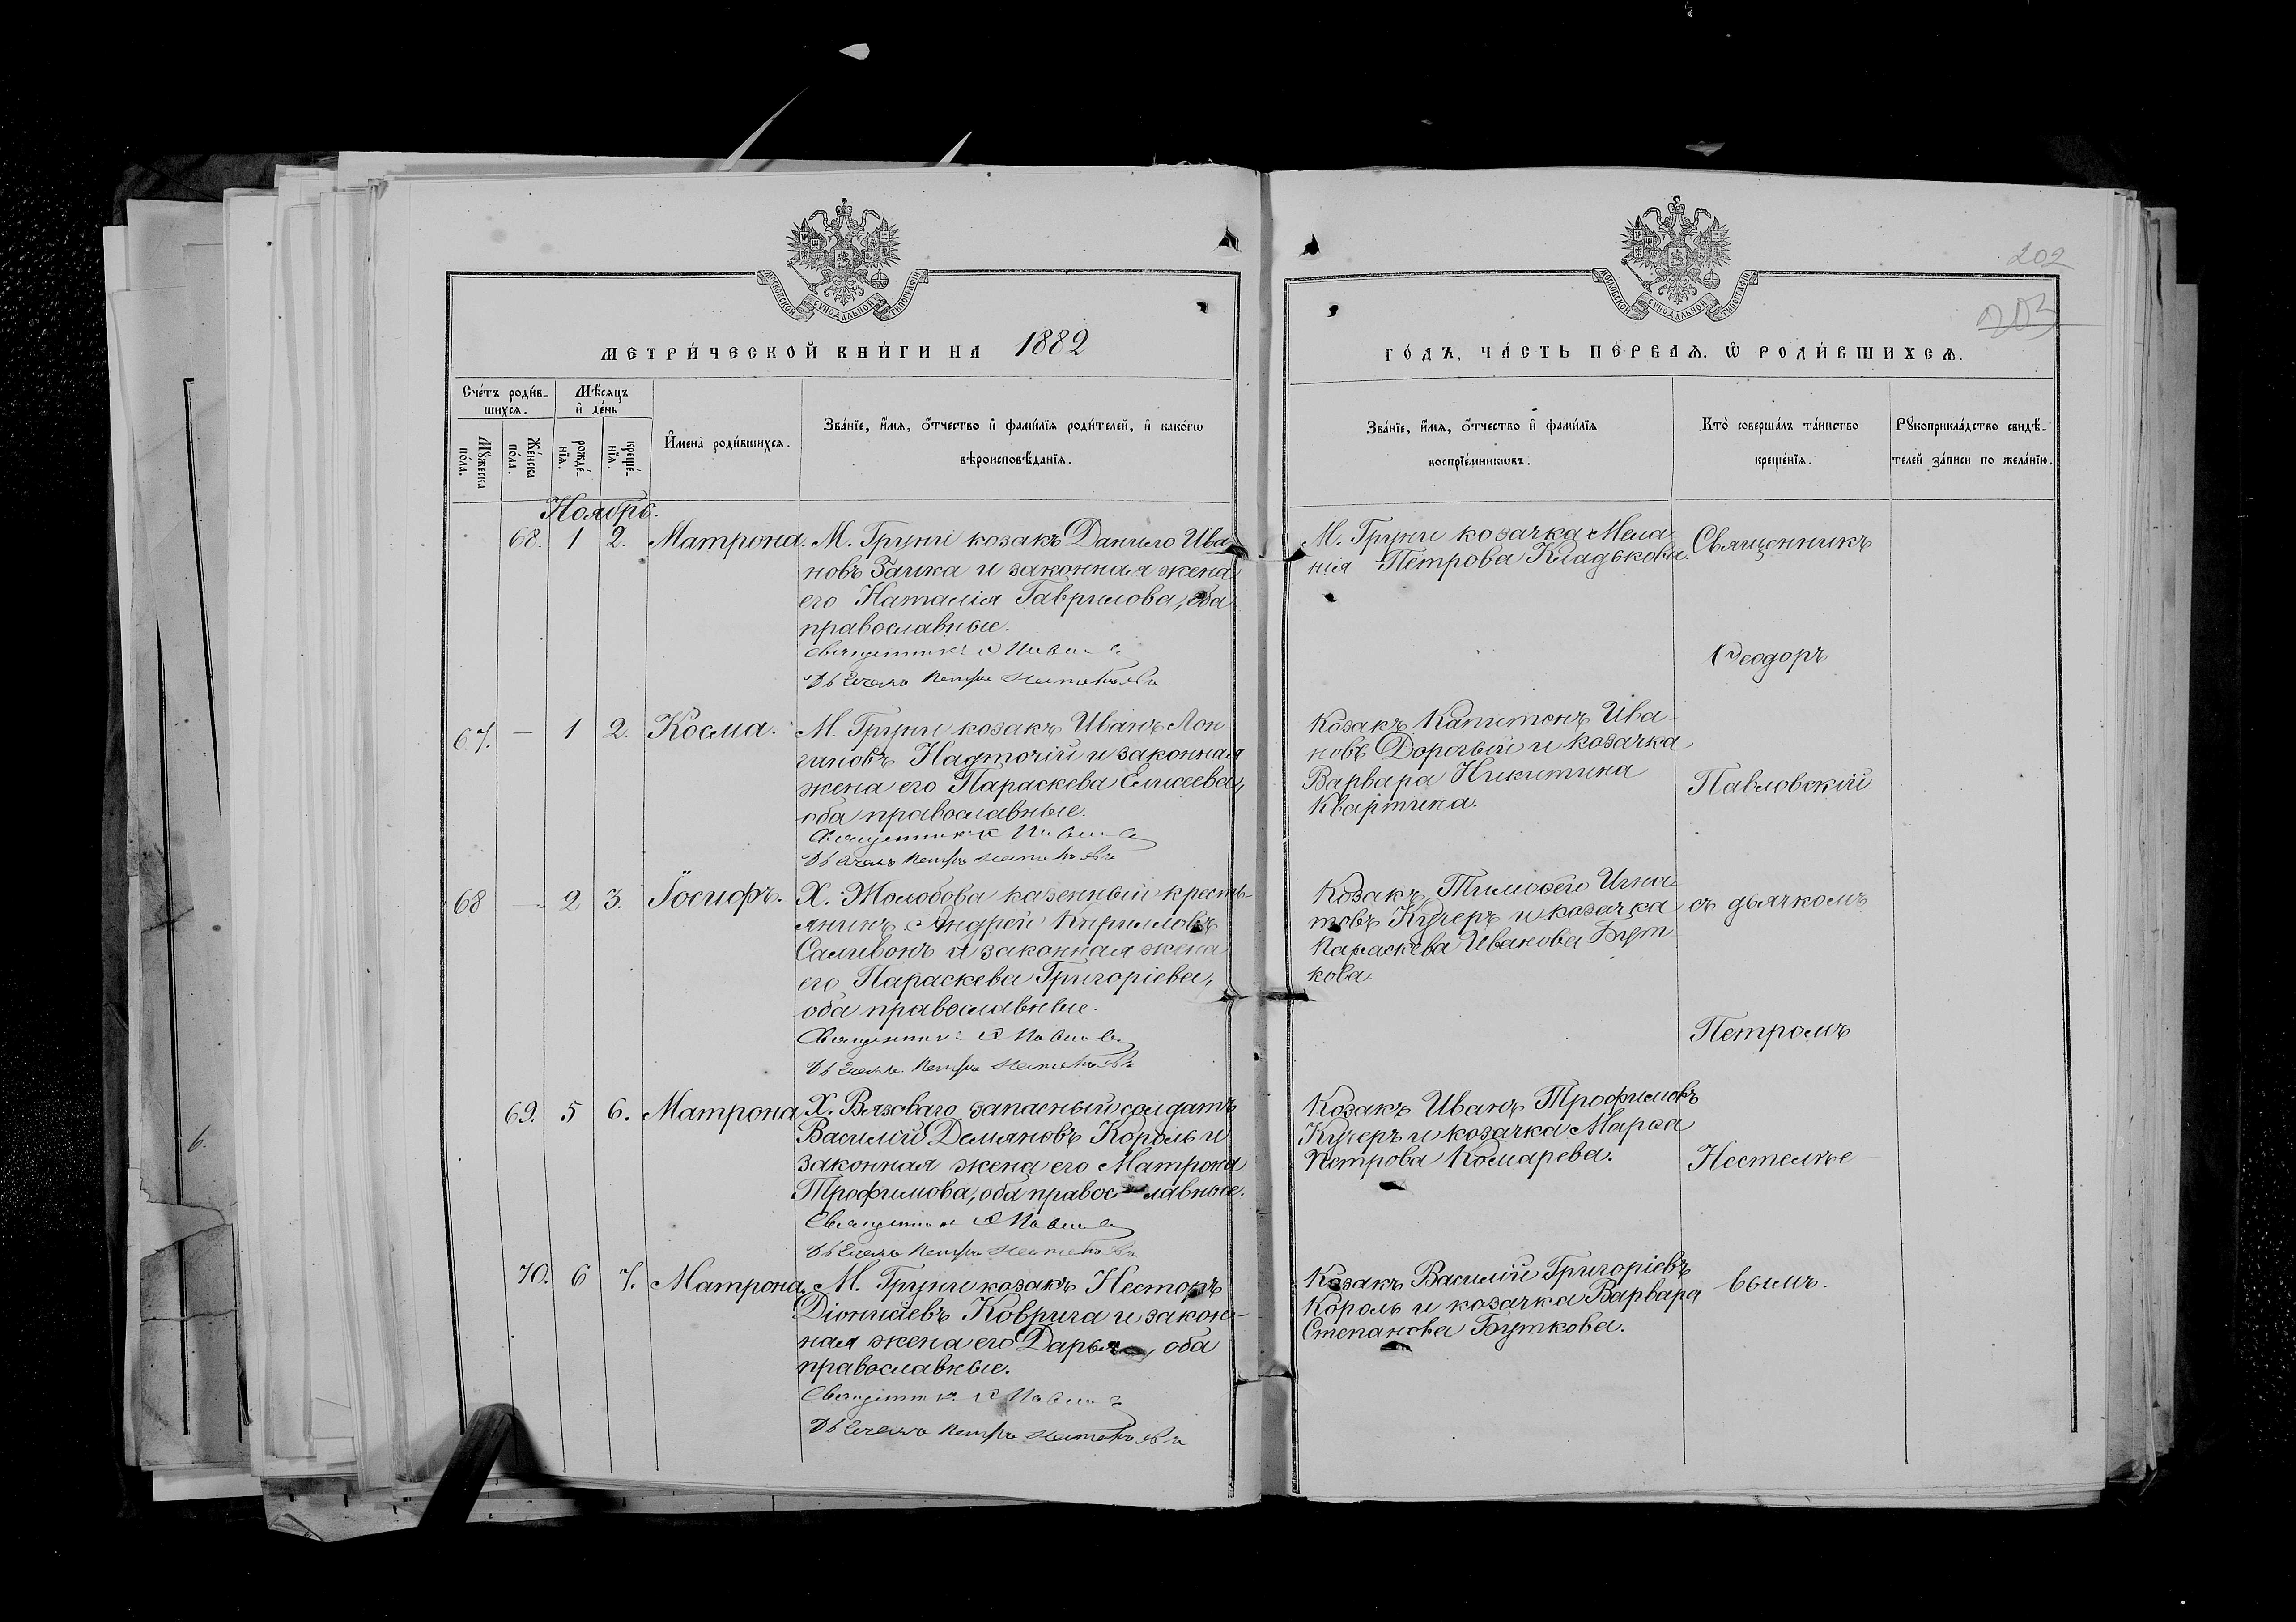 202
203
МОСКОВСКОЙ СУНОДАЛЬНОЙ ТИПОГРАФІИ
МОСКОВСКОЙ СУНОДАЛЬНОЙ ТИПОГРАФІИ
МЕТРИ́ЧЕСКОЙ КНИ́ГИ НА 1882
ГО́ДЪ, ЧА́СТЬ ПЕ́РВАЯ, Ѡ РОДИ́ВШИХСѦ.
Сче́тъ роди́в-
шихсѧ.
Мѣ́сѧцъ
и҆ де́нь
Мꙋ́жеска
по́ла.
Же́нска
по́ла.
рожде́-
нїѧ.
креще́-
нїѧ.
И҆мена̀ роди́вшихсѧ.
Зва́нїе, и҆́мѧ, ѻ҆́тчество и҆ фами́лїѧ роди́телей, и҆ како́гѡ
вѣроисповѣ́данїѧ.
Зва́нїе, и҆́мѧ, ѻ҆́тчество и҆ фами́лїѧ
воспрїе́мникѡвъ.
Кто̀ соверша́лъ та́инство
креще́нїѧ.
Рꙋкоприкла́дство свидѣ́-
телей за́писи по жела́нїю.
Ноябрь.
68. 1 2. Матрона. М. Груни козакъ Данило Ива
новъ Заика и законная жена
его Наталія Гаврилова, оба
православные.
Священникъ
Дьячекъ Петръ
М. Груни козачка Мела
нія Петрова Кладькова.
Священникъ
Ѳеодоръ
67. — 1 2. Косма. М. Груни козакъ Иванъ Лон
гиновъ Надточій и законная
жена его Параскева Елисеева,
оба православные.
Священникъ
Дьячекъ Петръ
Козакъ Капитонъ Ива-
новъ Дорогый и козачка
Варвара Никитина
Квартина.
Павловскій
68 — 2 3. Іосифъ. Х. Молобова казенный кресть-
янинъ Андрей Кирилловъ
Саливонъ и законная жена
его Параскева Григоріева,
оба православные.
Священникъ
Дьячекъ Петръ
Козакъ Тимоѳей Игна
товъ Кучеръ и козачка
Параскева Иванова Бут
кова.
съ дьячкомъ
Петромъ
69. 5 6. Матрона Х. Вязоваго запасный солдатъ
Василій Демяновъ Король и
законная жена его Матрона
Трофимова, оба православные.
Священникъ
Дьячекъ Петръ
Козакъ Иванъ Трофимовъ
Кучеръ и козачка Марѳа
Петрова Комарева.
Нестелѣе
70. 6 7. Матрона. М. Груни козакъ Несторъ
Діонисіевъ Коврига и закон-
ная жена его Дарья, оба
православные.
Священникъ
Дьячекъ Петръ
Козакъ Василій Григоріевъ
Король и козачка Варвара
Степанова Буткова.
вымъ.
6.